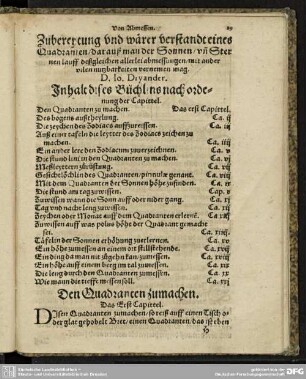 Von Abmessen.
Zubereytung vnd warer verstandt eines
Quadranten / dar auß man der Sonnen / vñ Ster
nen lauff deßgleichen allerlei abmessungen / mit ander
vilen nutzbarkeiten vernemen mag.
D. Jo. Dryander.
Inhalt dises Büchlins nach orde-
nung der Capittel.
Den Quadranten zu machen. Das erst Capittel.
Des bogens außtheylung. Ca. ij
Die zeychen des Zodiacs auffzureissen. Ca. iij
machen. Ca. iiij
Ein ander lere den Zodiacum Ca. v
Die stund lini in den Quadranten zu machen. Ca. vj
Ca. vij
Geschtlöchlin des Quadranten / pinnulæ genant. Ca. viij
Mit dem Quadranten der Sonnen höhe zufinden. Ca. ix
Die stund am tag zuwissen. Ca. x
Zuwissen wann die Sonn auff oder nider gang. Ca. xj
Tag vnd nacht leng zuwissen. Ca. xij
Zeychen oder Monat auß dem Quadranten Ca. xiij
Zuwissen auff was polus höhe der Quadrant gemacht
sei. Ca. xiiij.
Täfelin der Sonnen erhöhung zuerlernen. Ca. xv
Ein höhe zumessen an einem ort stillstehende. Ca. xvij
Ein ding da man nit zugehn kan / zumessen. Ca. xviij
Ein höhe auff einem berg im tal zumessen. Ca. xix
Die leng durch den Quadranten zumessen. Ca. xx
Wie mann die tieffe messen soll. Ca. xxj
Den Quadranten zumachen.
Das Erst Capittel.
DJsen Quadranten zumachen / so reiß auff einen Tisch o-
der glat gehobelt Bret / einen Quadranten / das ist eben